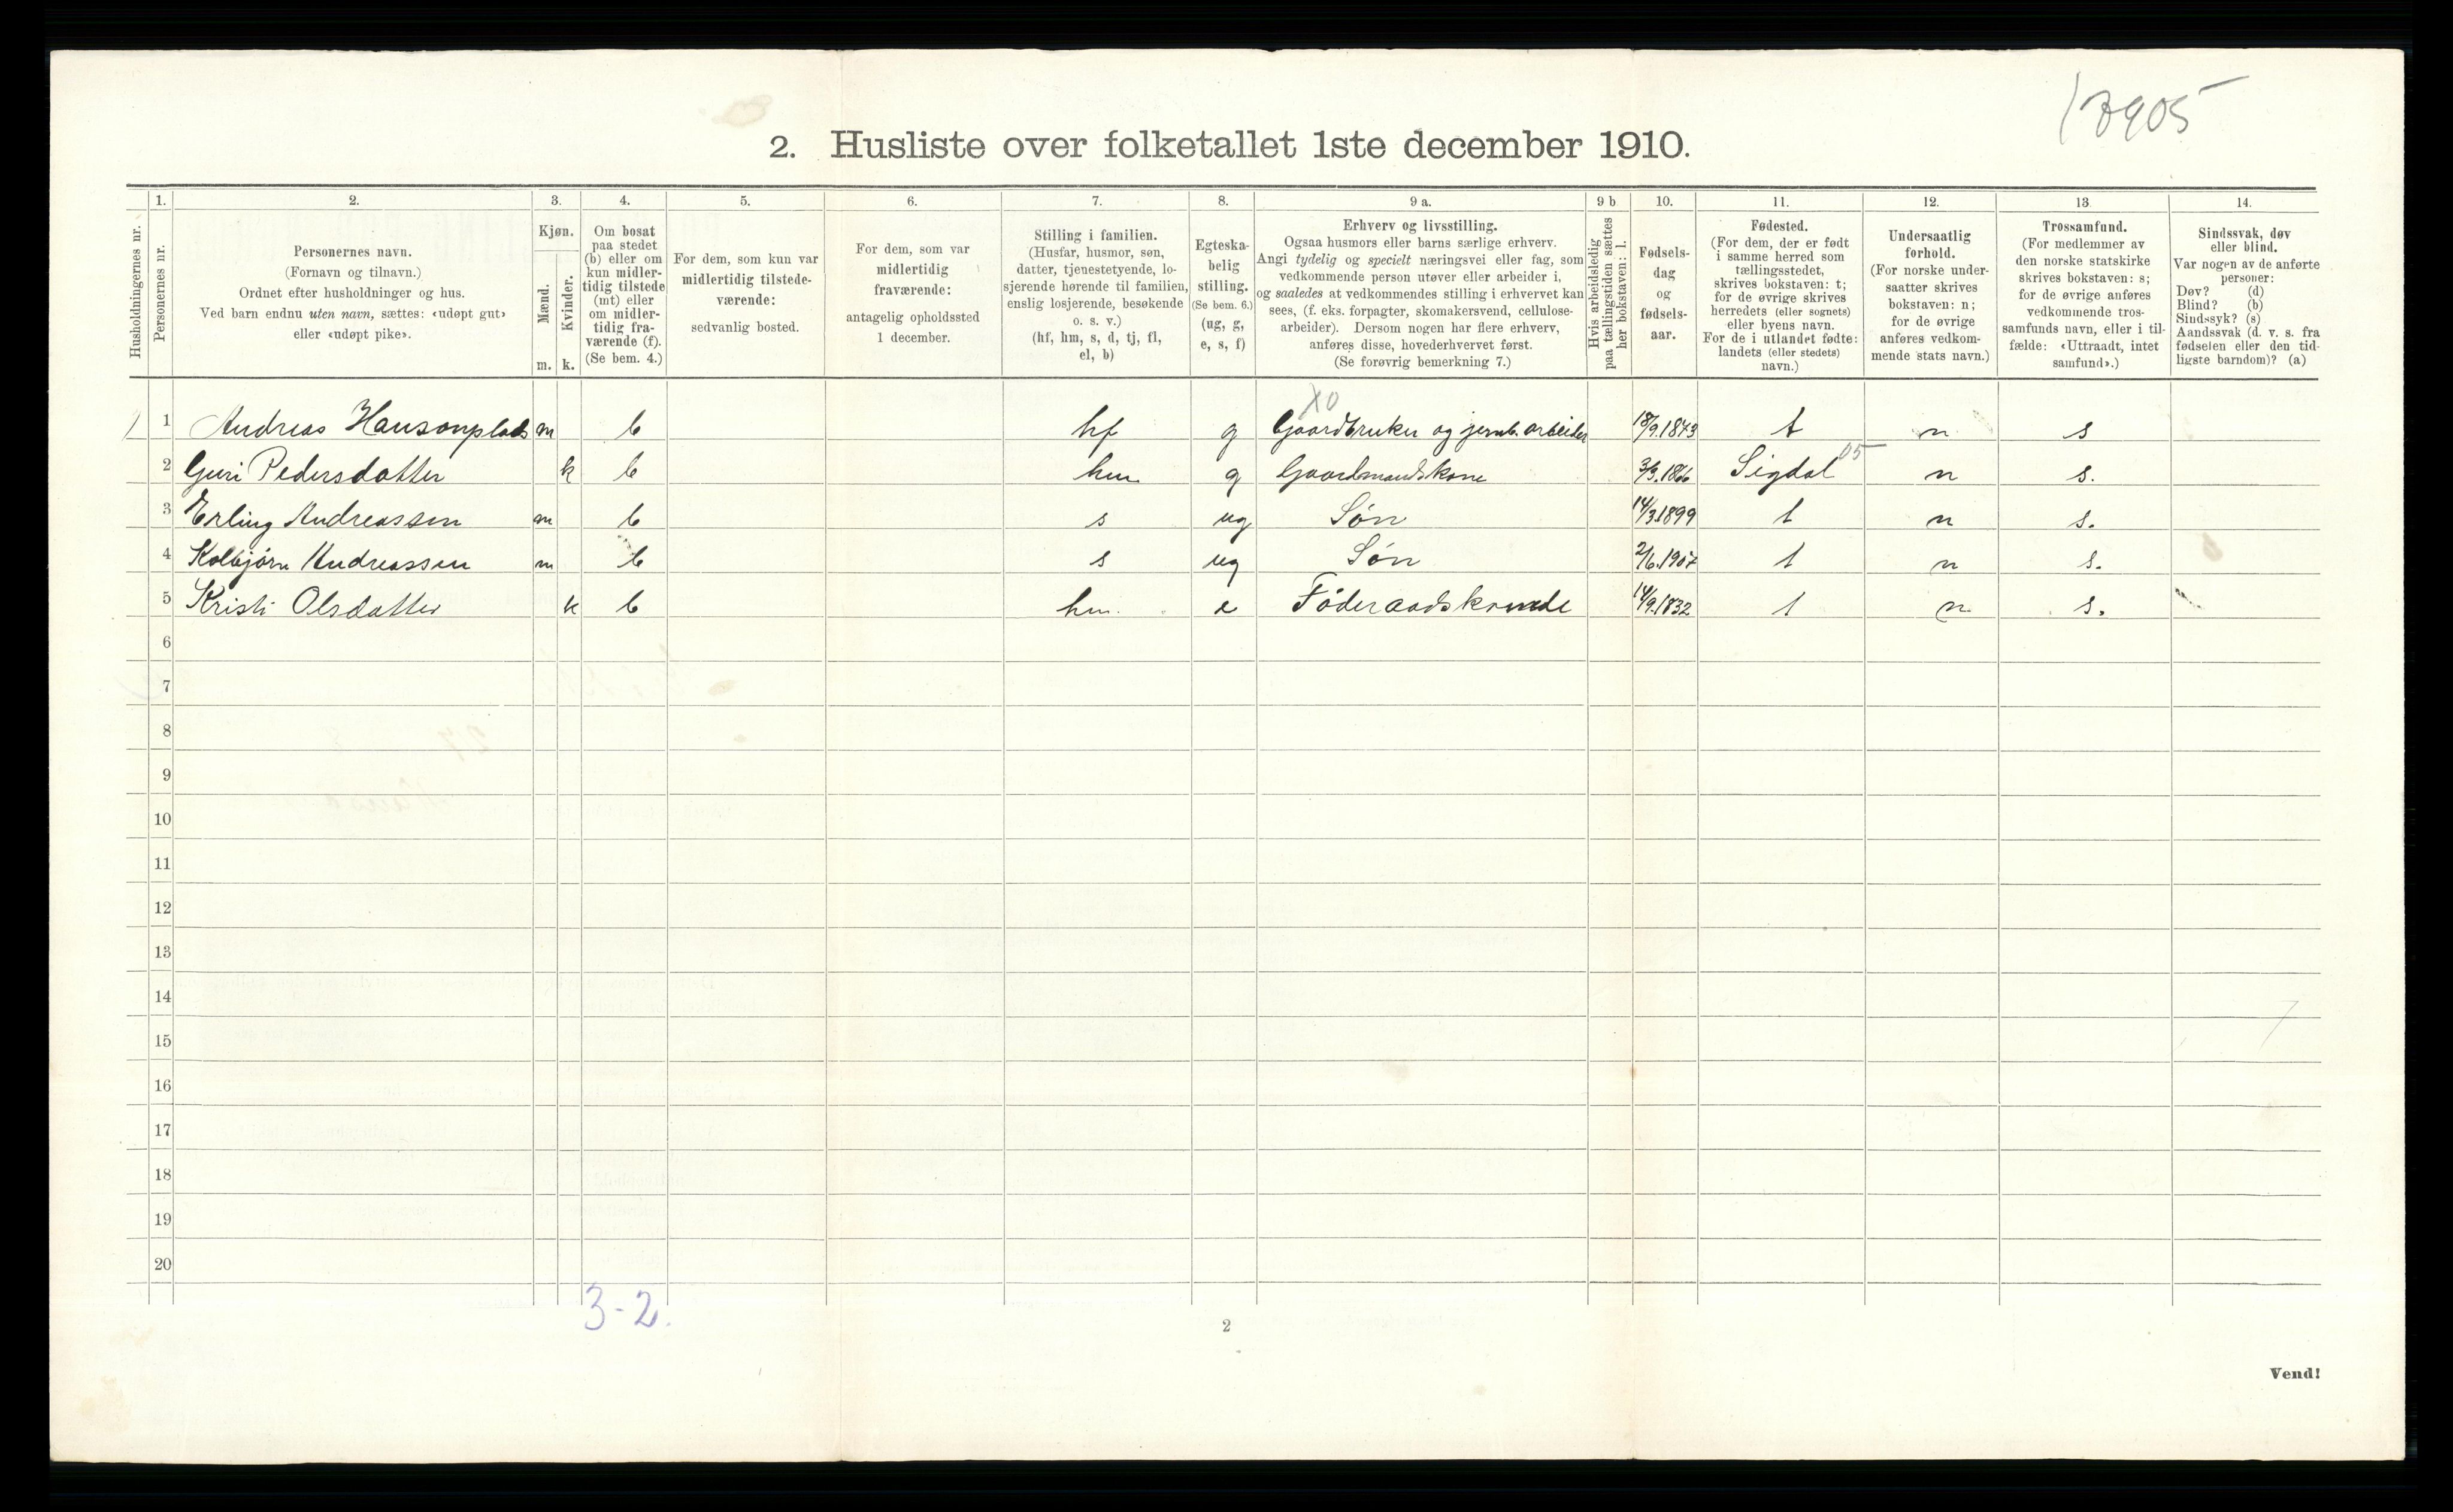 2. Husliste over folketallet 1ste december 1910.
Husholdningernes nr.
1. Personernes nr.
2. Personernes navn.
(Fornavn og tilnavn.)
Ordnet efter husholdninger og hus.
Ved barn endnu uten navn, sættes: «udøpt gut»
eller «udøpt pike».
3. Kjøn.
Mænd. m.
Kvinder. k.
4. Om bosat
paa stedet
(b) eller om
kun midler-
tidig tilstede
(mt) eller
om midler-
tidig fra-
værende (f).
(Se bem. 4.)
5. For dem, som kun var
midlertidig tilstede-
værende:
sedvanlig bosted.
6. For dem, som var
midlertidig
fraværende:
antagelig opholdssted
1 december.
7. Stilling i familien.
(Husfar, husmor, søn,
datter, tjenestetyende, lo-
sjerende hørende til familien,
enslig losjerende, besøkende
o. s. v.)
(hf, hm, s, d, tj, fl,
el, b)
8. Egteska-
belig
stilling.
(Se bem. 6.)
(ug, g,
e, s, f)
9 a. Erhverv og livsstilling.
Ogsaa husmors eller barns særlige erhverv.
Angi tydelig og specielt næringsvei eller fag, som
vedkommende person utøver eller arbeider i,
og saaledes at vedkommendes stilling i erhvervet kan
sees, (f. eks. forpagter, skomakersvend, cellulose-
arbeider). Dersom nogen har flere erhverv,
anføres disse, hovederhvervet først.
(Se forøvrig bemerkning 7.)
9 b Hvis arbeidsledig
paa tællingstiden sættes
her bokstaven: l.
10. Fødsels-
dag
og
fødsels-
aar.
11. Fødested.
(For dem, der er født
i samme herred som
tællingsstedet,
skrives bokstaven: t;
for de øvrige skrives
herredets (eller sognets)
eller byens navn.
For de i utlandet fødte:
landets (eller stedets)
navn.)
12. Undersaatlig
forhold.
(For norske under-
saatter skrives
bokstaven: n;
for de øvrige
anføres vedkom-
mende stats navn.)
13. Trossamfund.
(For medlemmer av
den norske statskirke
skrives bokstaven: s;
for de øvrige anføres
vedkommende tros-
samfunds navn, eller i til-
fælde: «Uttraadt, intet
samfund».)
14. Sindssvak, døv
eller blind.
Var nogen av de anførte
personer:
Døv? (d)
Blind? (b)
Sindssyk? (s)
Aandssvak (d. v. s. fra
fødselen eller den tid-
ligste barndom)? (a)
X0
1 1 Andreas Hansonplads m b hf g Gaardbruker og jernb. arbeider 18/9.1843 t n s
2 Guri Pedersdatter k b hm g Gaardmandskone 3/3.1866 Sigdal 05 n s.
3 Erling Andreassen m b s ug Søn 14/3.1899 t n s.
4 Kolbjørn Andreassen m b s ug Søn 2/6.1907 t n s.
5 Kristi Olsdatter k b hm. e Föderaadskvinde 14/9.1832 t n s.
6
7
8
9
10
11
12
13
14
15
16
17
18
19
20
3-2.
2
Vend!